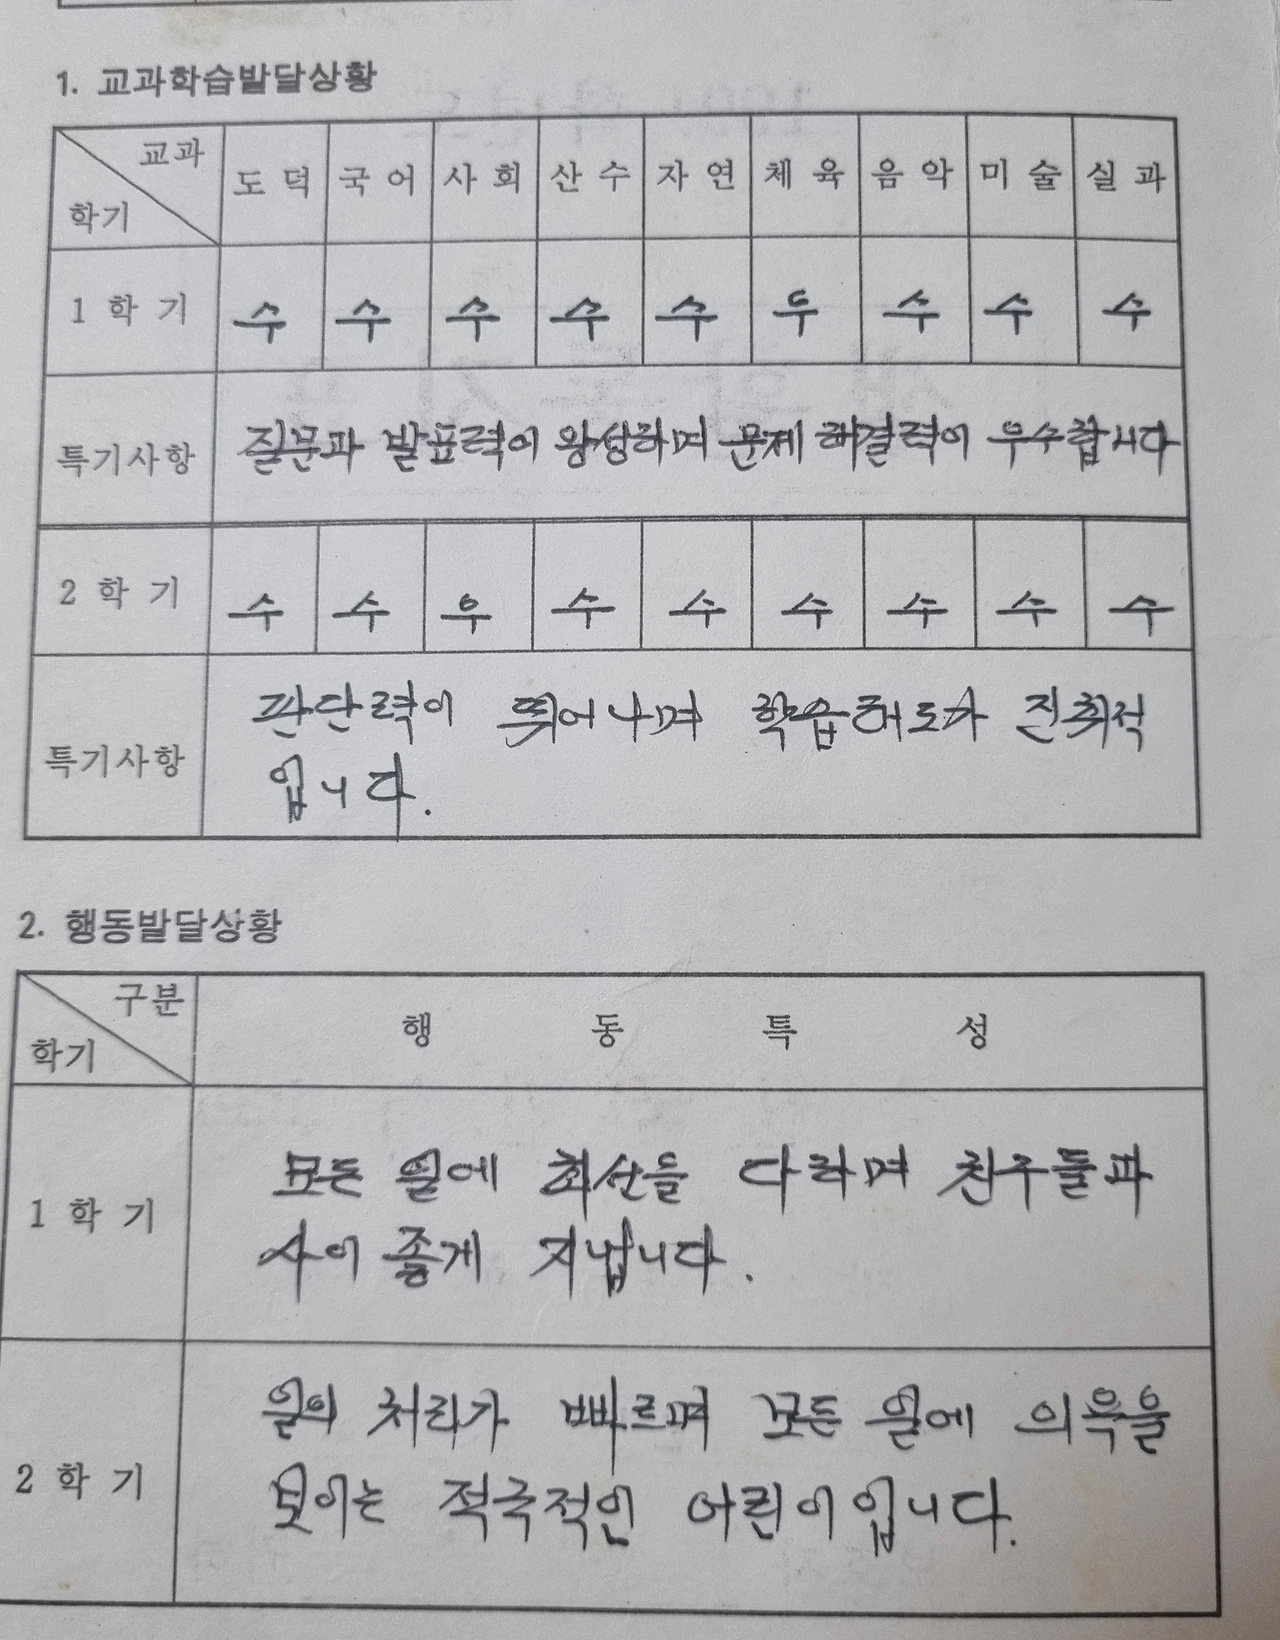 1. 교과학습발달상황
교과
학기
도덕 국어 사회 산수 자연 체육 음악 미술 실과
1 학 기 수 수 수 수 수 우 수 수 수
특기사항 질문과 발표력이 왕성하며 문제 해결력이 우수합니다
2 학 기 수 수 우 수 수 수 수 수 수
특기사항
판단력이 뛰어나며 학습태도가 진취적
입니다.
2. 행동발달상황
구분
학기
행 동 특 성
1 학 기
모든 일에 최선을 다하며 친구들과
사이 좋게 지냅니다.
2 학 기
일의 처리가 빠르며 모든 일에 의욕을
보이는 적극적인 어린이입니다.